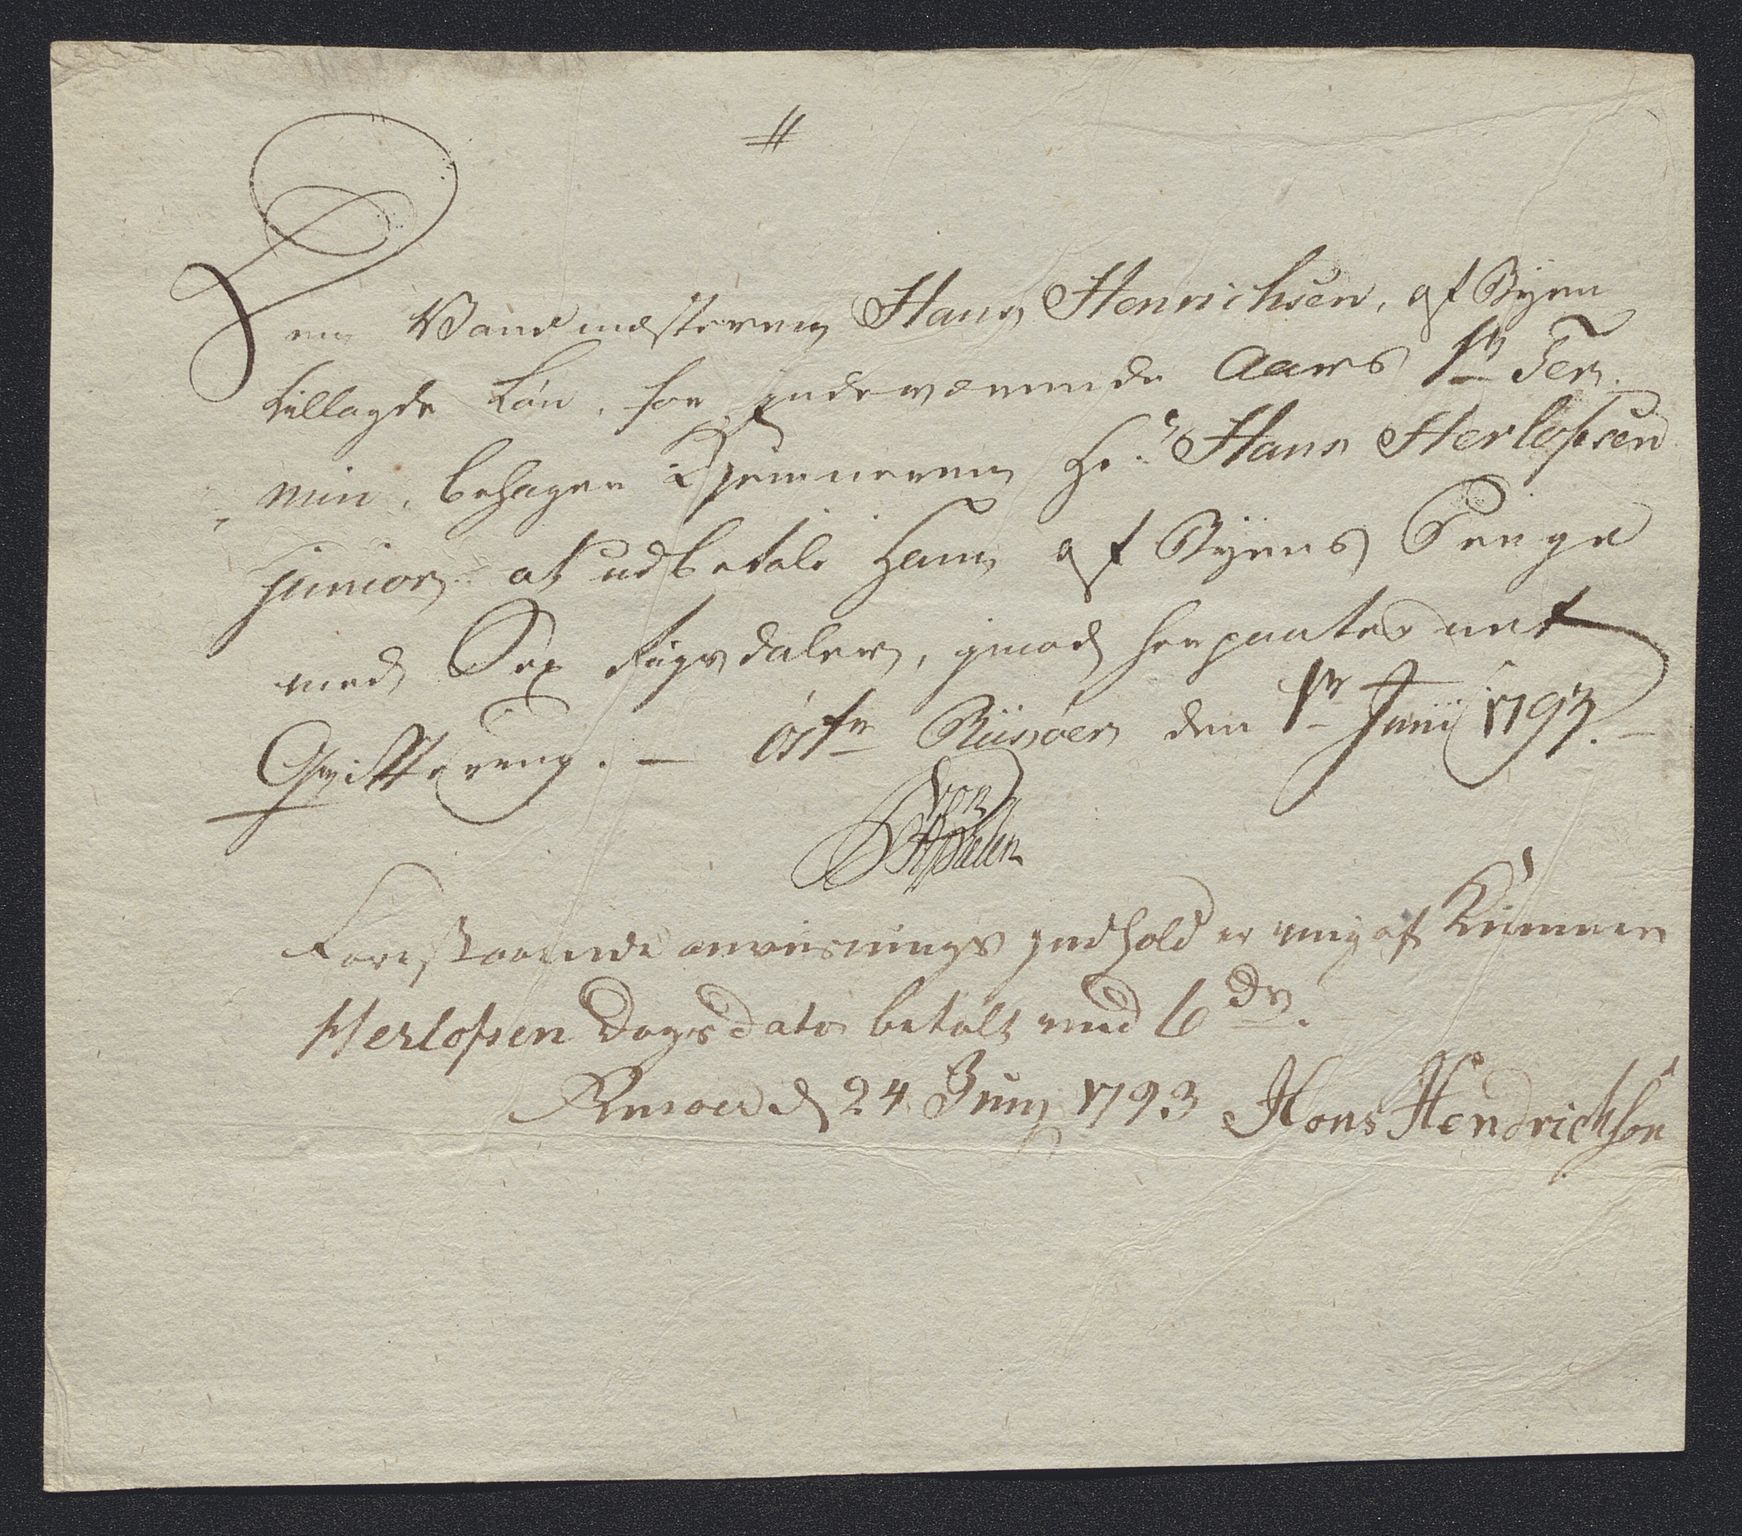 Den Vandmesteren Hans Henrichsen, af Byen
tillagde Løn, for indeværende Aars 1te Ter-
min, behager Kjemneren Hr. Hans Herlofsen
junior at udbetale ham af Byens Penge
med Sex Rigsdaler, imod paateignet
Qvittering. — Østr Riisøer den 1te Junii 1793. —
von
Forestaaende anvisnings indhold er mig af Kemner
Herlofsen Dags dato betalt med 6 dr.
Riisøer d 24 Juny 1793 Hans Hendrichsen